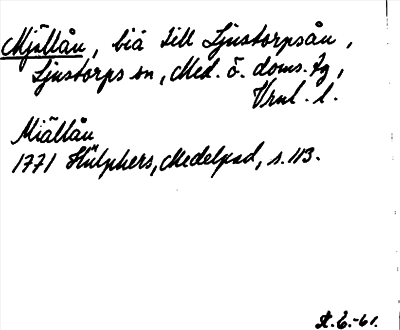 Mjällån, biå till Ljustorpsån,
Ljustorps sn, Med. ö. doms. tg,
Vrnl. l.
Miällån
1771 Hülphers, Medelpad, s. 113.
St. E. -61.